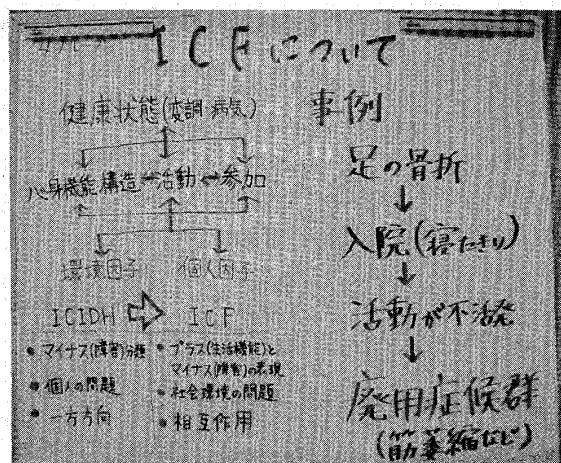 ICFについて
健康状態(変調 病気)
心身機能構造 ↔ 活動 ↔ 参加
環境因子 個人因子
ICIDH ⇨ ICF
• マイナス(障害)分類
• 個人の問題
• 一方方向
• プラス(生活機能)と
マイナス(障害)の表現
• 社会環境の問題
• 相互作用
事例
足の骨折
↓
入院(寝たきり)
↓
活動が不活発
↓
廃用症候群
(筋萎縮など)